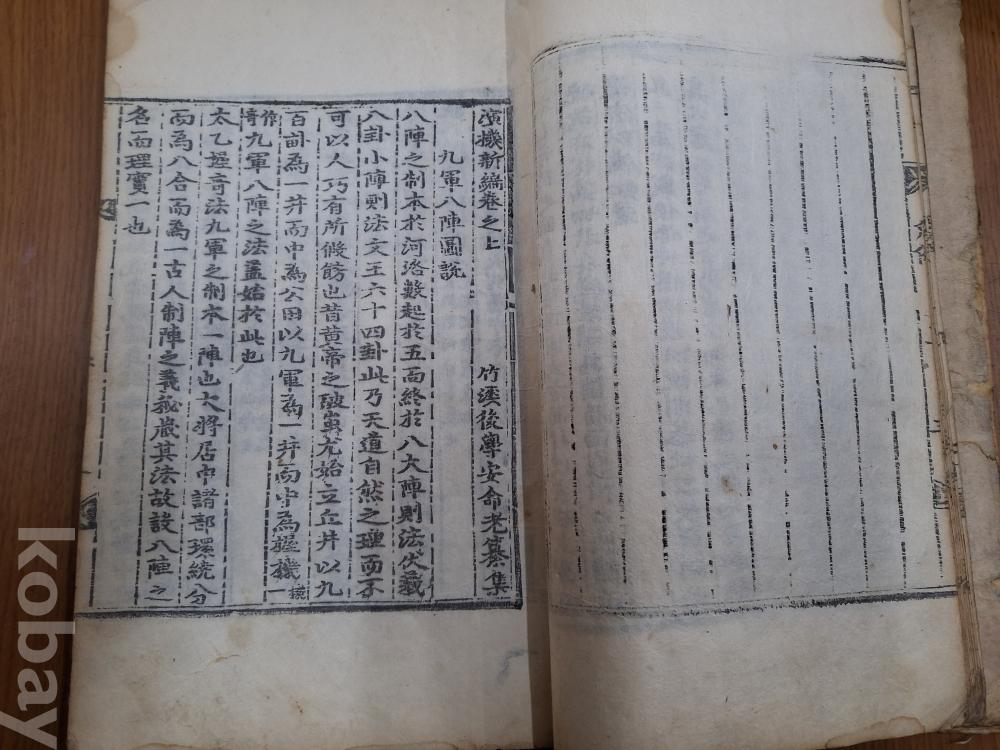 演機新編卷之上 竹溪後學安命老纂集
九軍八陣圖說
八陣之制本於河洛數起於五而終於八大陣則法伏羲
八卦小陣則法文王六十四卦此乃天道自然之理而不
可以人巧有所假飾也昔黃帝之破蚩尤始立丘井以九
百畝為一井而中為公田以九軍為一井而中為握機握一
作奇九軍八陣之法蓋始於此也
太乙握奇法九軍之制本一陣也大將居中諸部環繞分
而為八合而為一古人制陣之義秘厳其法故設八陣之
名而理實一也
kobay